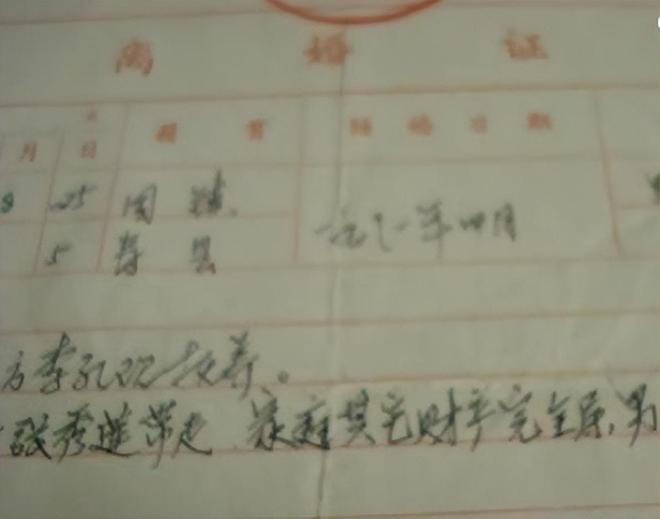 离 婚 证
月 日 籍 贯 结 婚 日 期
25 周 镇
5 寿 县 一九七一年四月
方李 抚养。
张秀莲带走 家庭其它财产完全属 男